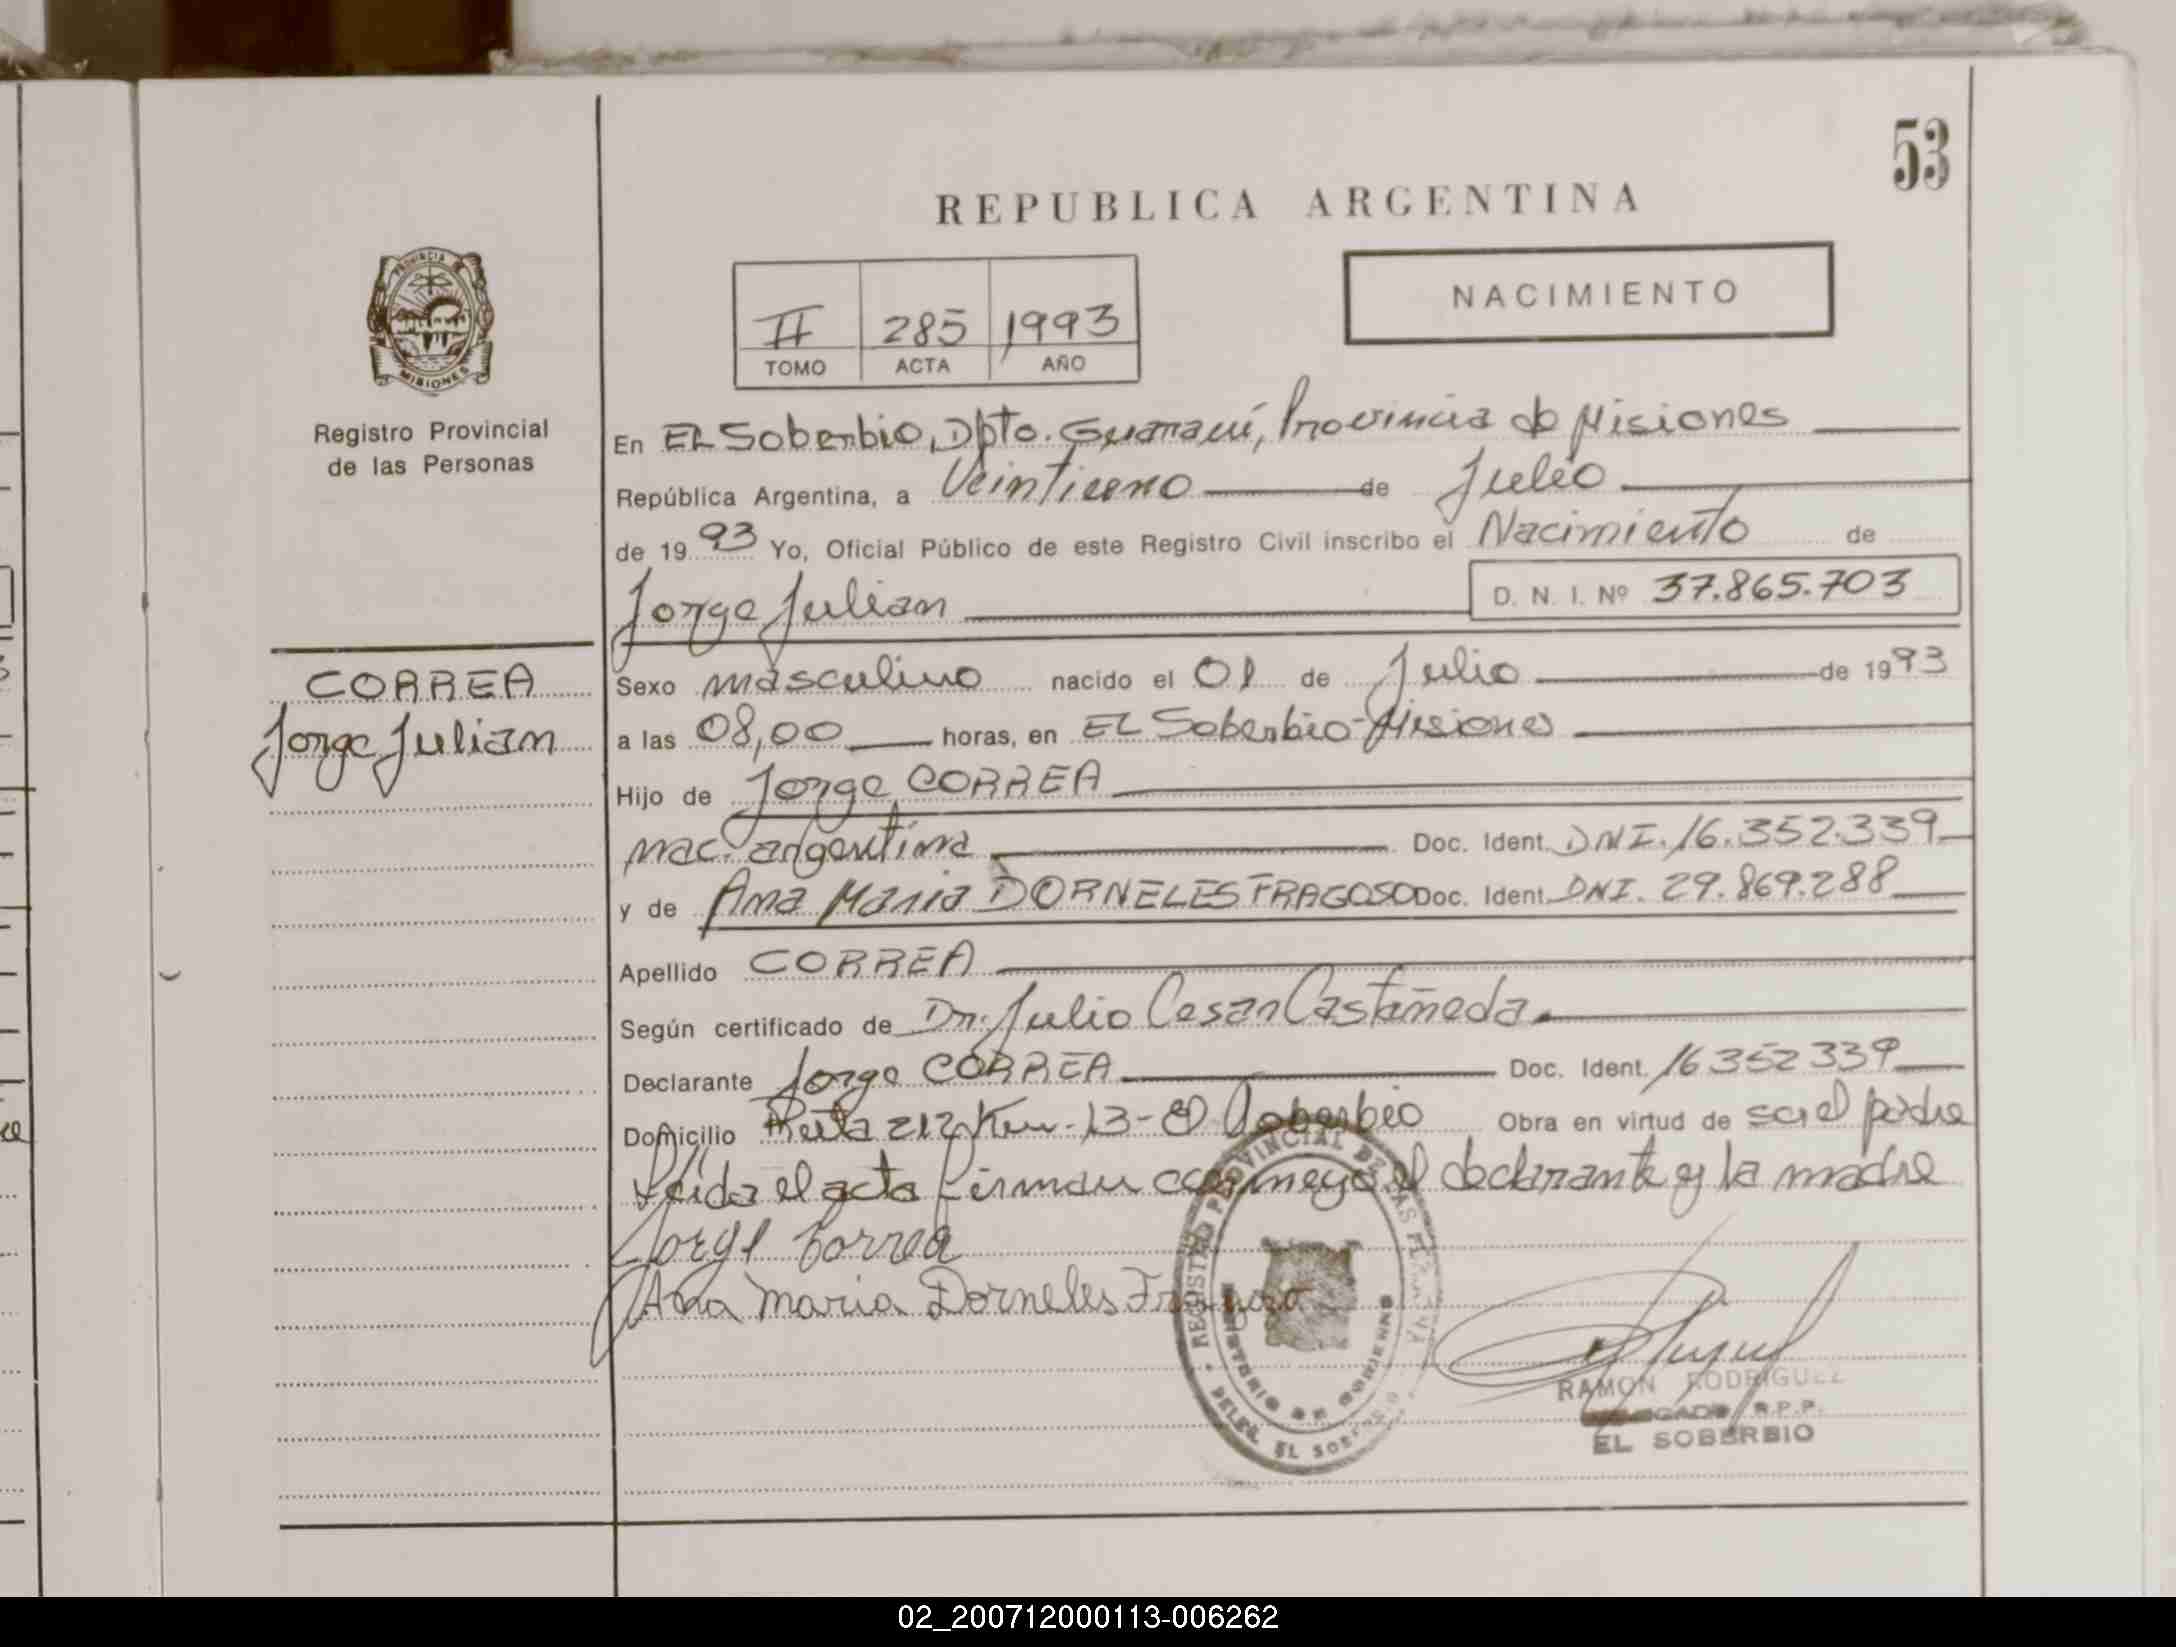 53
REPUBLICA ARGENTINA
PROVINCIA DE
MISIONES
Registro Provincial
de las Personas
II 285 1993
TOMO ACTA AÑO
NACIMIENTO
En EL Soberbio, Dpto. Guaraní, Provincia de Misiones
República Argentina, a Veintiuno de Julio
de 1993 Yo, Oficial Público de este Registro Civil inscribo el Nacimiento de
Jorge Julian D. N. I. Nº 37.865.703
CORREA
Jorge Julian
Sexo masculino nacido el 01 de Julio de 1993
a las 08,00 horas, en EL Soberbio-Misiones
Hijo de Jorge CORREA
nac. argentina Doc. Ident. DNI. 16.352.339
y de Ana Maria DORNELES FRAGOSO Doc. Ident. DNI. 29.869.288
Apellido CORREA
Según certificado de Dr. Julio Cesar Castañeda.
Declarante Jorge CORREA Doc. Ident. 16 352 339
Domicilio Ruta 212 Km-13-El Soberbio Obra en virtud de ser el padre
Leída el acta firman conmigo el declarante y la madre
Jorge Correa
Ana Maria Dorneles Fragoso
REGISTRO PROVINCIAL DE LAS PERSONAS
MINISTERIO DE GOBIERNO
DELEG. EL SOBERBIO
RAMON RODRIGUEZ
R.P.P.
EL SOBERBIO
02_200712000113-006262